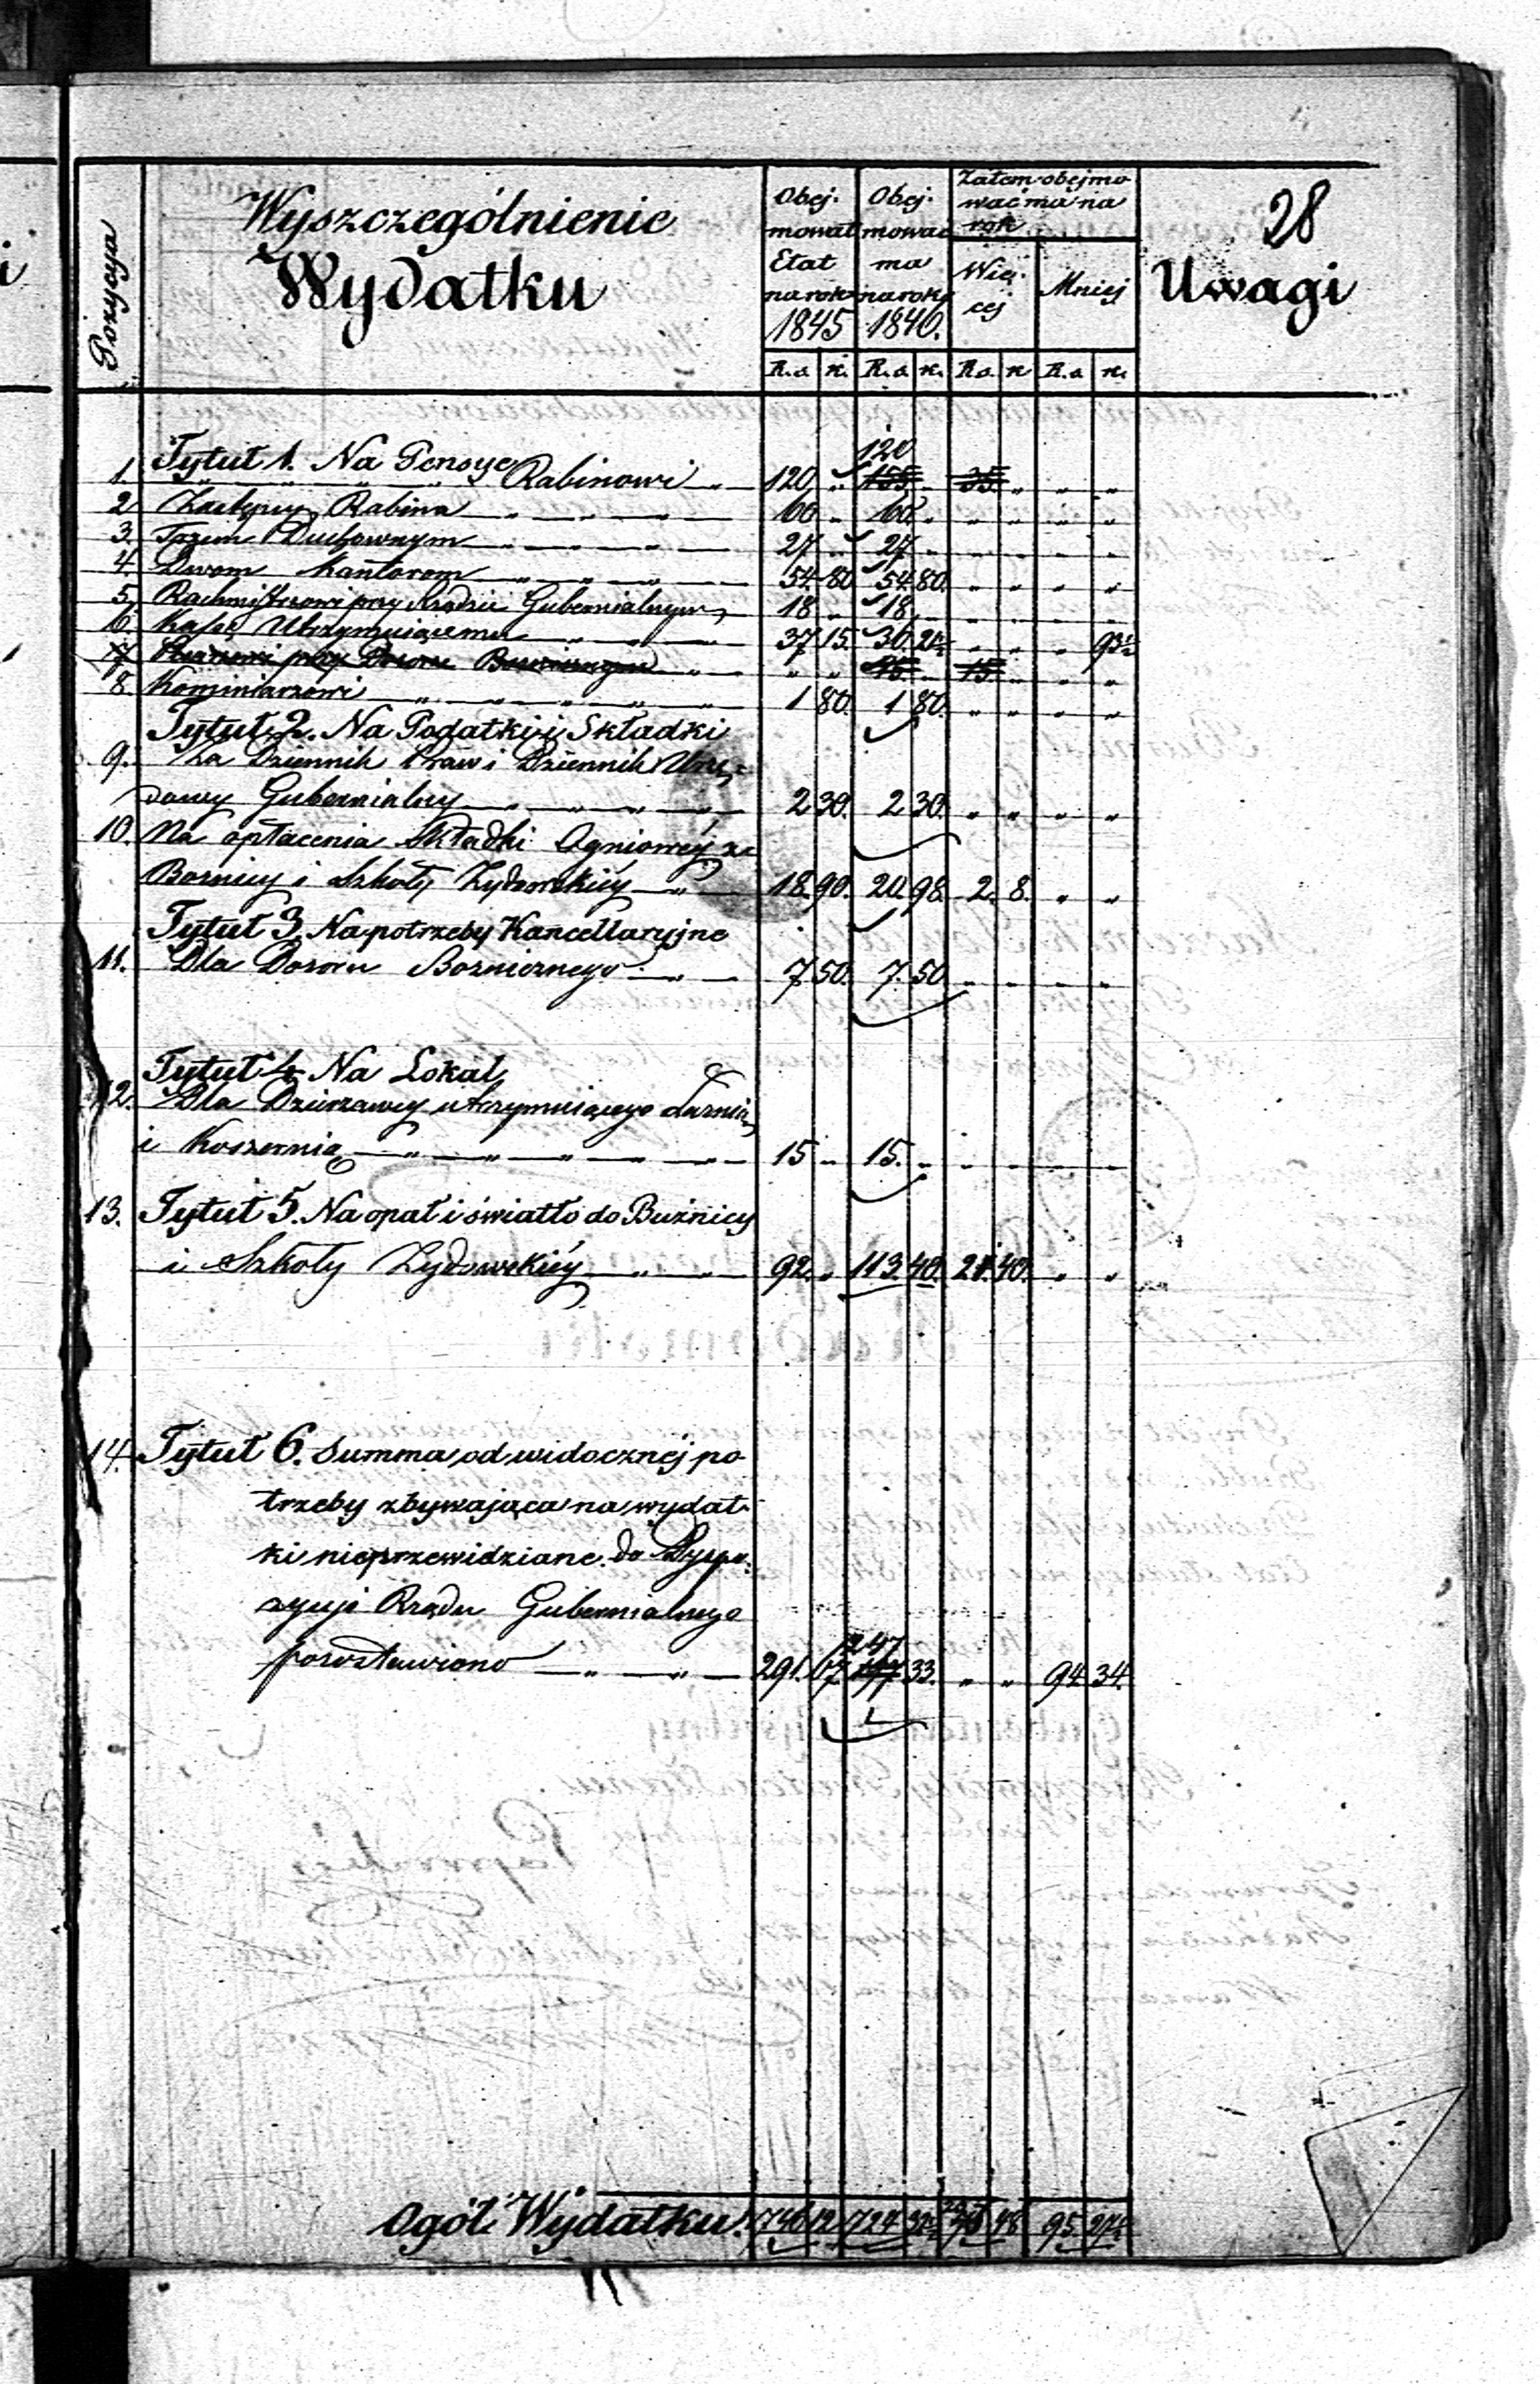 28
Pozycya
Wyszczególnienie Wydatku
Obejmował Etat na rok 1845
Obejmować ma na rok 1846.
Zatem obejmować ma na rok
Więcej
Mniej
Uwagi
R.s. k. R.s. k. R.s. k. R.s. k.
Tytuł 1. Na Pensye
120
1. " " " Rabinowi " 120 " 155 " 35 " " "
2. Zastępcy Rabina " " " " 60 " 60 " " " " "
3. Trzem Duchownym " " " 27 " 27 " " " " "
4. Dwom Kantorom " " " 54 80 54 80. " " " "
5. Rachmistrzowi przy Rządzie Gubernialnym 18 " 18 " " " " "
6. Kassę Utrzymującemu " " " 37 15. 36 21½ " " " 93½
7. przy Dozorze Bożniczym " " " 15 " 15 " " "
8. Kominiarzowi " " " " " 1 80. 1 80. " " " "
Tytuł 2. Na Podatki i Składki
9. Za Dziennik Praw i Dziennik Urzę-
dowy Gubernialny " " " " 2 30. 2 30. " " " "
10. Na opłacenia Składki Ogniowéy z
Boznicy i Szkoły Żydowskiéy " 18. 90. 20. 98. 2. 8. " "
Tytuł 3. Na potrzeby Kancellaryjne
11. Dla Dozoru Bożnicznego " 7 50. 7. 50 " " " "
Tytuł 4. Na Lokal
12. Dla Dzierzawcy utrzymuiącego Łaznią
i Koszernią " " " " " 15 " 15. " " " " "
13. Tytuł 5. Na opał i światło do Buźnicy
i Szkoły Żydowskiéy " " 92. " 113. 40. 21. 40. " "
14. Tytuł 6. Summa od widocznéj po-
trzeby zbywająca na wydat-
ki nieprzewidziane do Dyspo-
zycyi Rządu Gubernialnego
247
pozostawiono " " 291. 67. 197 33. " " 94 34.
Ogół Wydatku. 746 12 724 32½ 48 95 27½